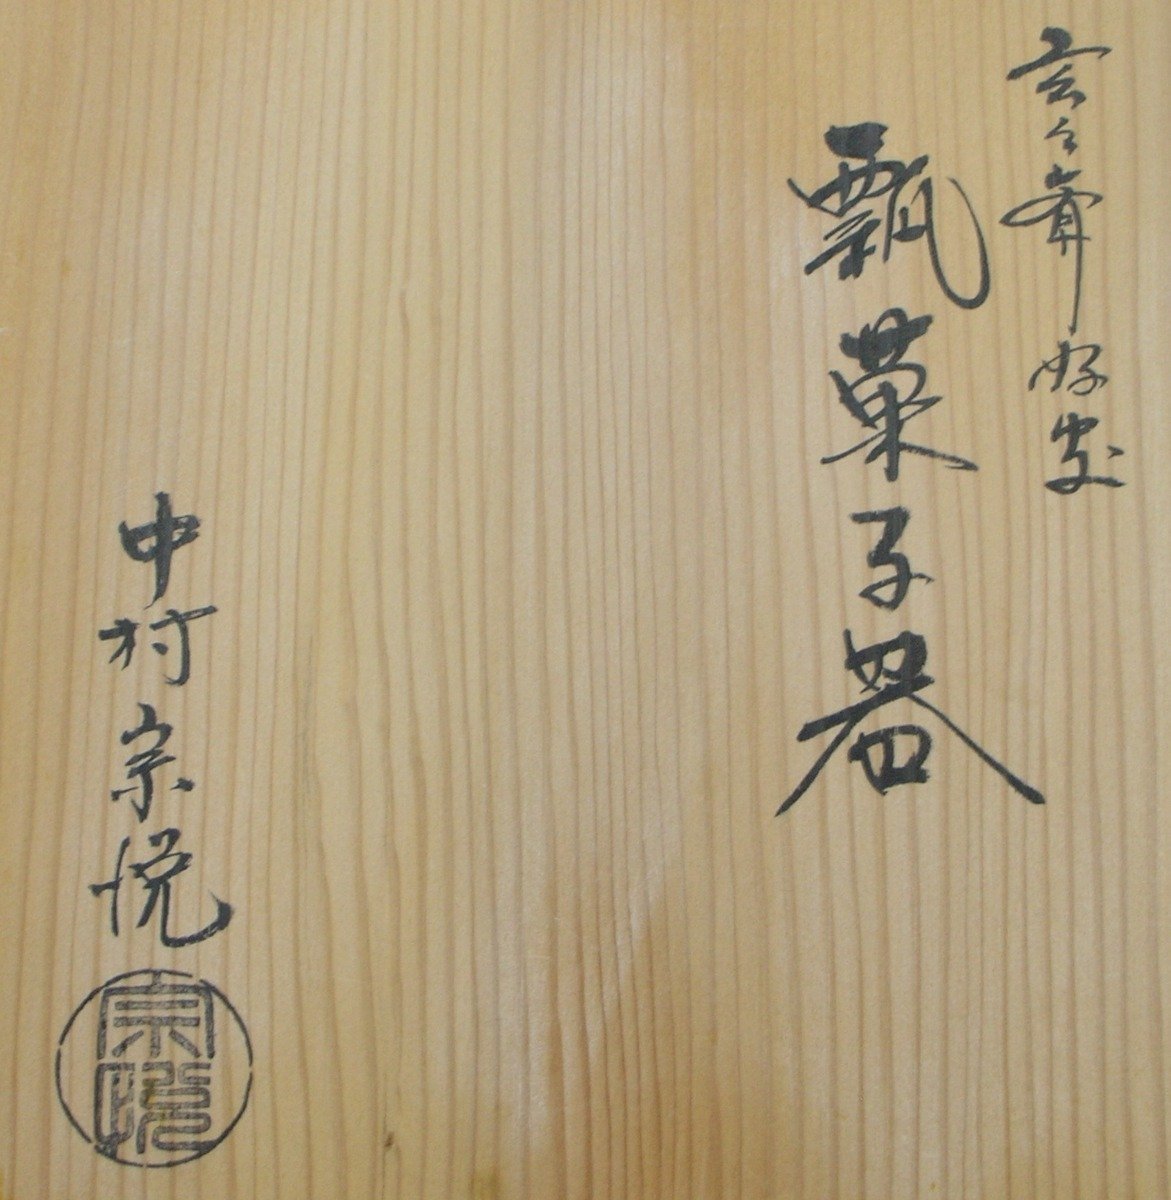 玄々斎好
瓢菓子器
中村宗悦
宗悦